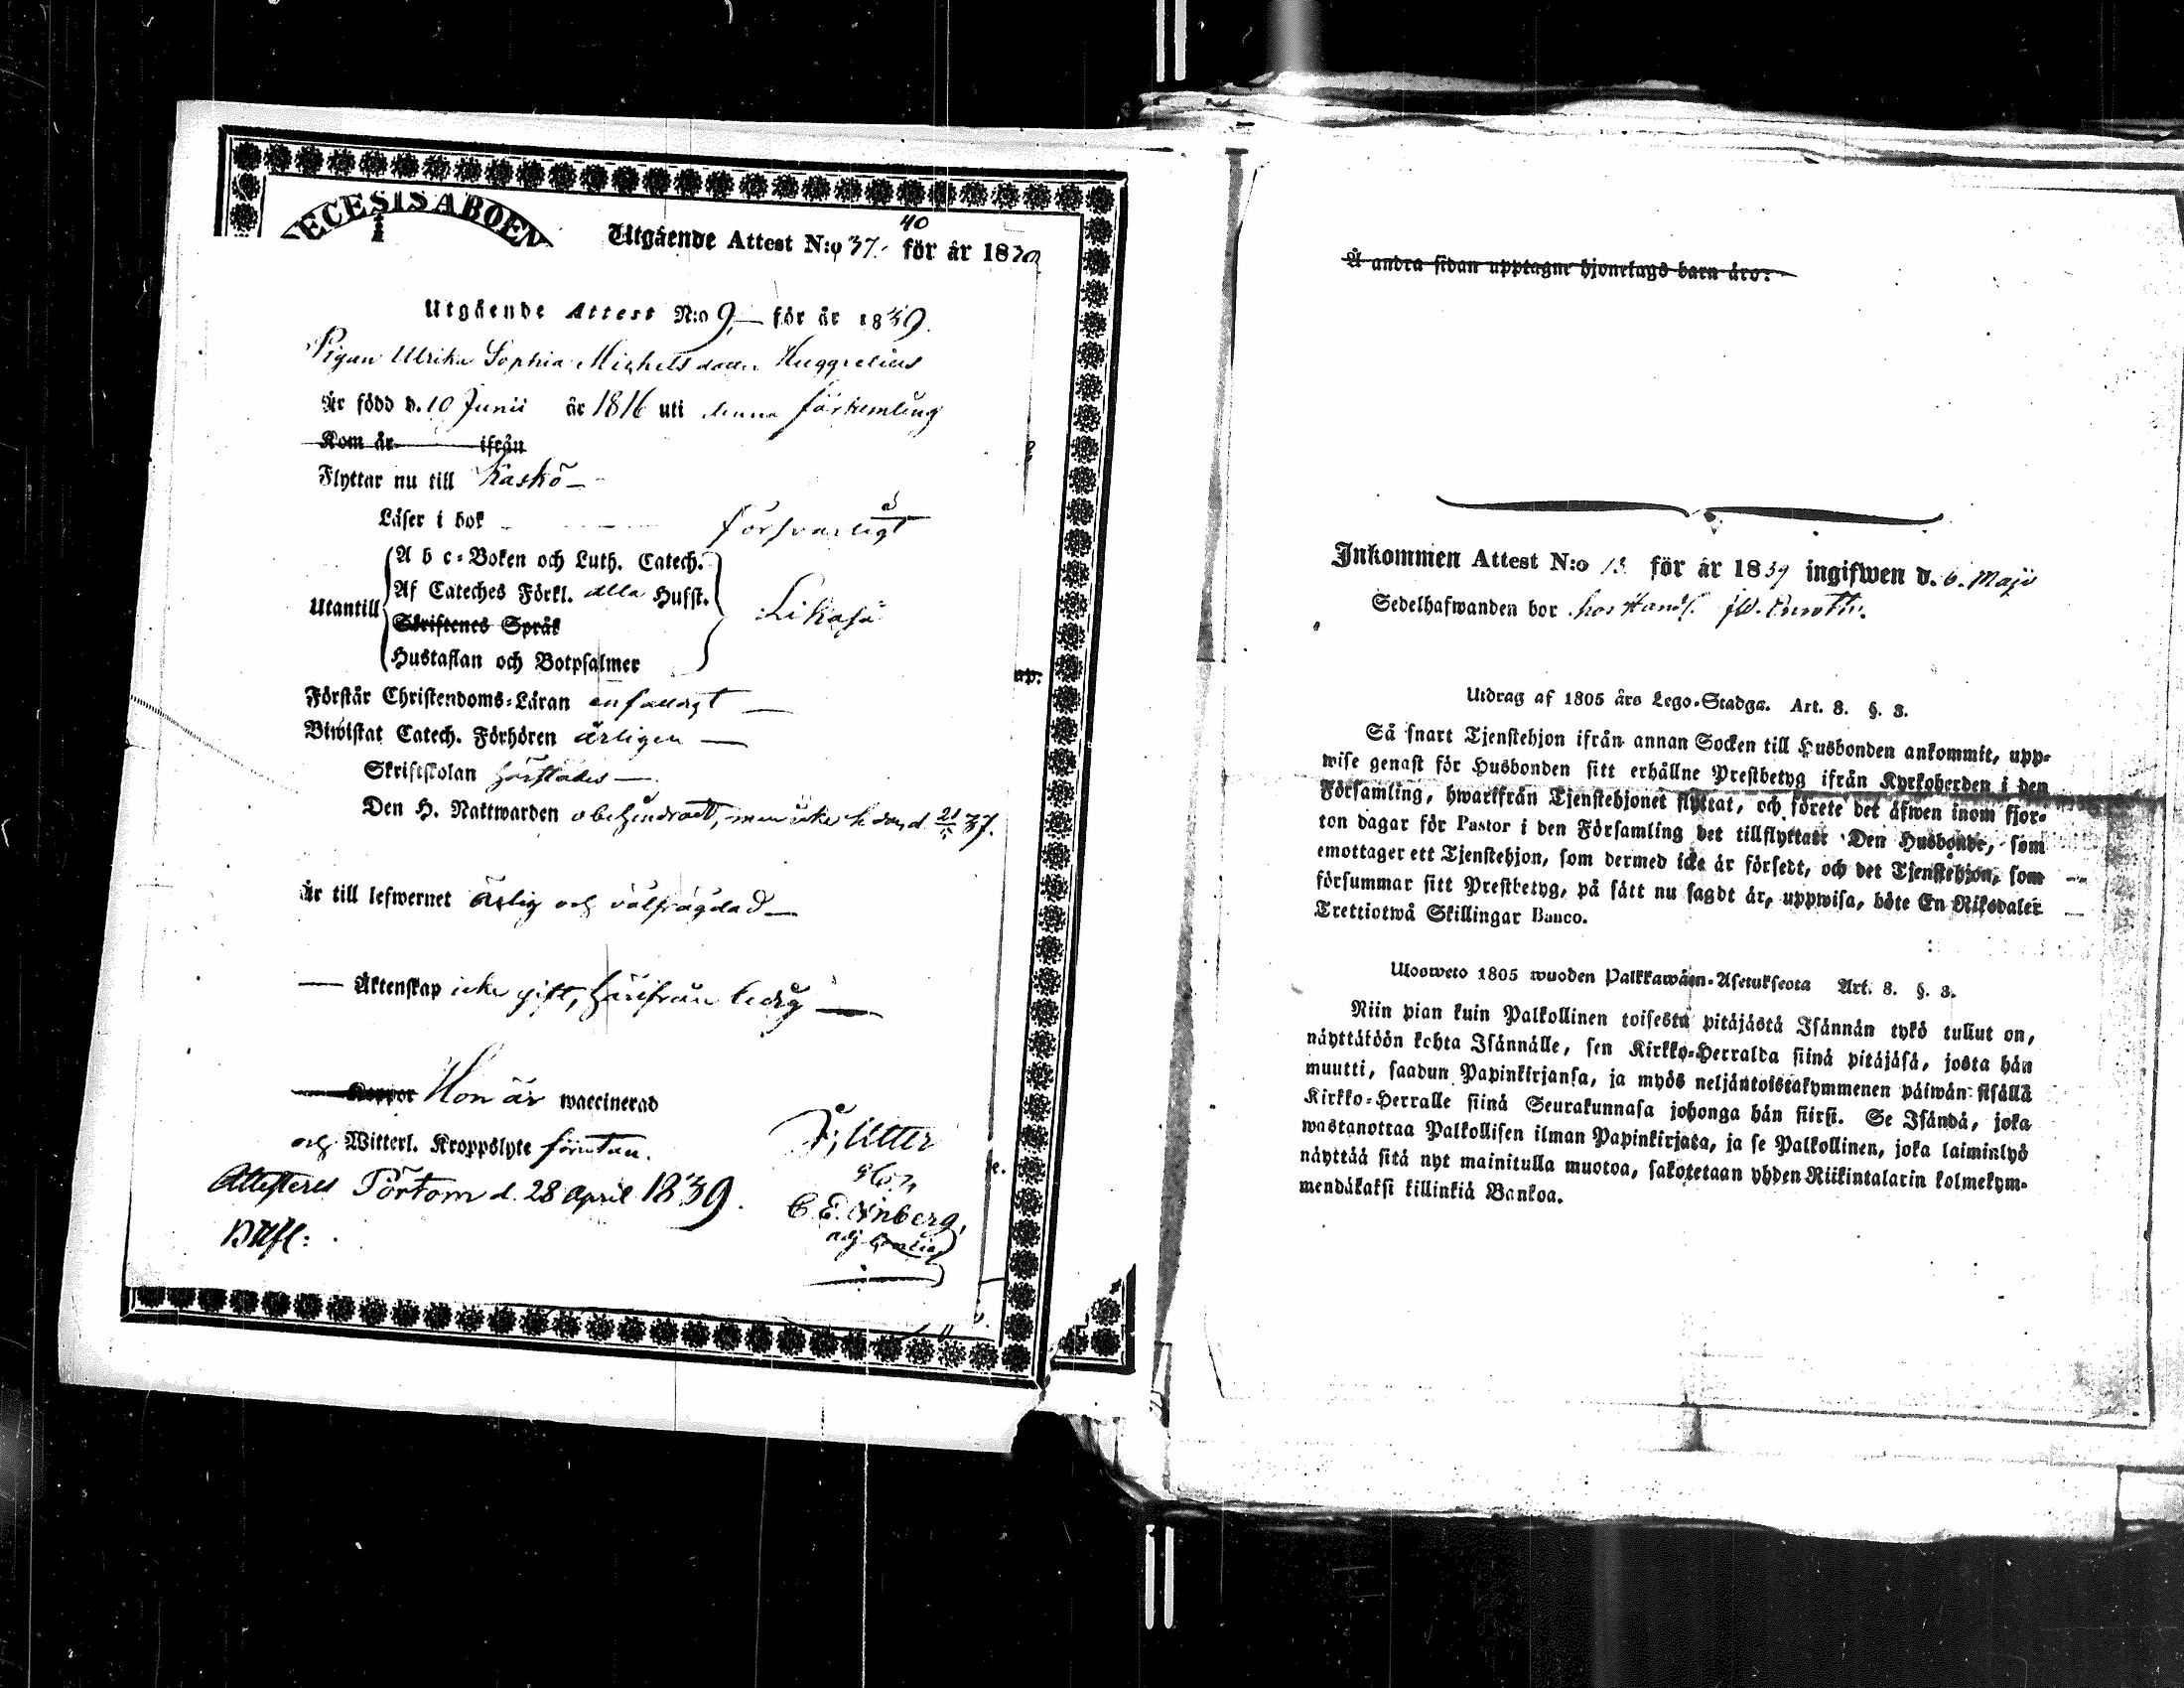 ECESIS ABOEN
40
Utgående Attest N:o 37. för år 18
Utgående Attest N:o 9 för år 1839.
Pigan Ulrika Sophia Michelsdotter Huggrelius
Är född d. 10 Junii år 1816 uti denna församling
Kom år ifrån
Flyttar nu till Kaskö
Läser i bok försvarligt
A b c-Boken och Luth. Catech.
Af Cateches Förkl. alla Husft.
Utantill Likaså
Skriftenes Språk
Hustaflan och Botpsalmer
Förstår Christendoms-Läran enfaldigt
Biwistat Catech. Förhören årligen
Skriftskolan härstädes
Den H. Nattwarden obehindradt, men icke sedan d. 37.
Är till lefwernet ärlig och välfrägdad
Äktenskap icke gift, härifrån ledig
Koppor Hon är waccinerad
och Witterl. Kroppslyte förutan.
Attesteras Pörtom d. 28 April 1839.
C. E.
Å andra sidan upptagne hjonelags barn äro:
Inkommen Attest N:o 13 för år 1839 ingifwen d. 6. Maji
Sedelhafwanden bor hos Handl.
Utdrag af 1805 års Lego-Stadga. Art. 8. §. 3.
Så snart Tjenstehjon ifrån annan Socken till Husbonden ankommit, upp-
wise genast för Husbonden sitt erhållne Prestbetyg ifrån Kyrkoherden i den
Församling, hwarifrån Tjenstehjonet flyttat, och förete det äfwen inom fjor-
ton dagar för Pastor i den Församling det tillflyttatt Den Husbonde, som
emottager ett Tjenstehjon, som dermed icke är försedt, och det Tjenstehjon, som
försummar sitt Prestbetyg, på sätt nu sagdt är, uppwisa, böte En Riksdaler
Trettiotwå Skillingar Banco.
Ulosweto 1805 wuoden Palkkawäen-Asetukseota Art. 8. §. 3.
Niin pian kuin Palkollinen toisesta pitäjästä Isännän tykö tullut on,
näyttäköön kohta Isännälle, sen Kirkko-Herralda siinä pitäjäsä, josta hän
muutti, saadun Papinkirjansa, ja myös neljäntoistakymmenen päiwän sisällä
Kirkko-Herralle siinä Seurakunnasa johonga hän siirsi. Se Isändä, joka
wastanottaa Palkollisen ilman Papinkirjata, ja se Palkollinen, joka laiminlyö
näyttää sitä nyt mainitulla muotoa, sakotetaan yhden Riikintalarin kolmekym-
mendäkaksi killinkiä Bankoa.